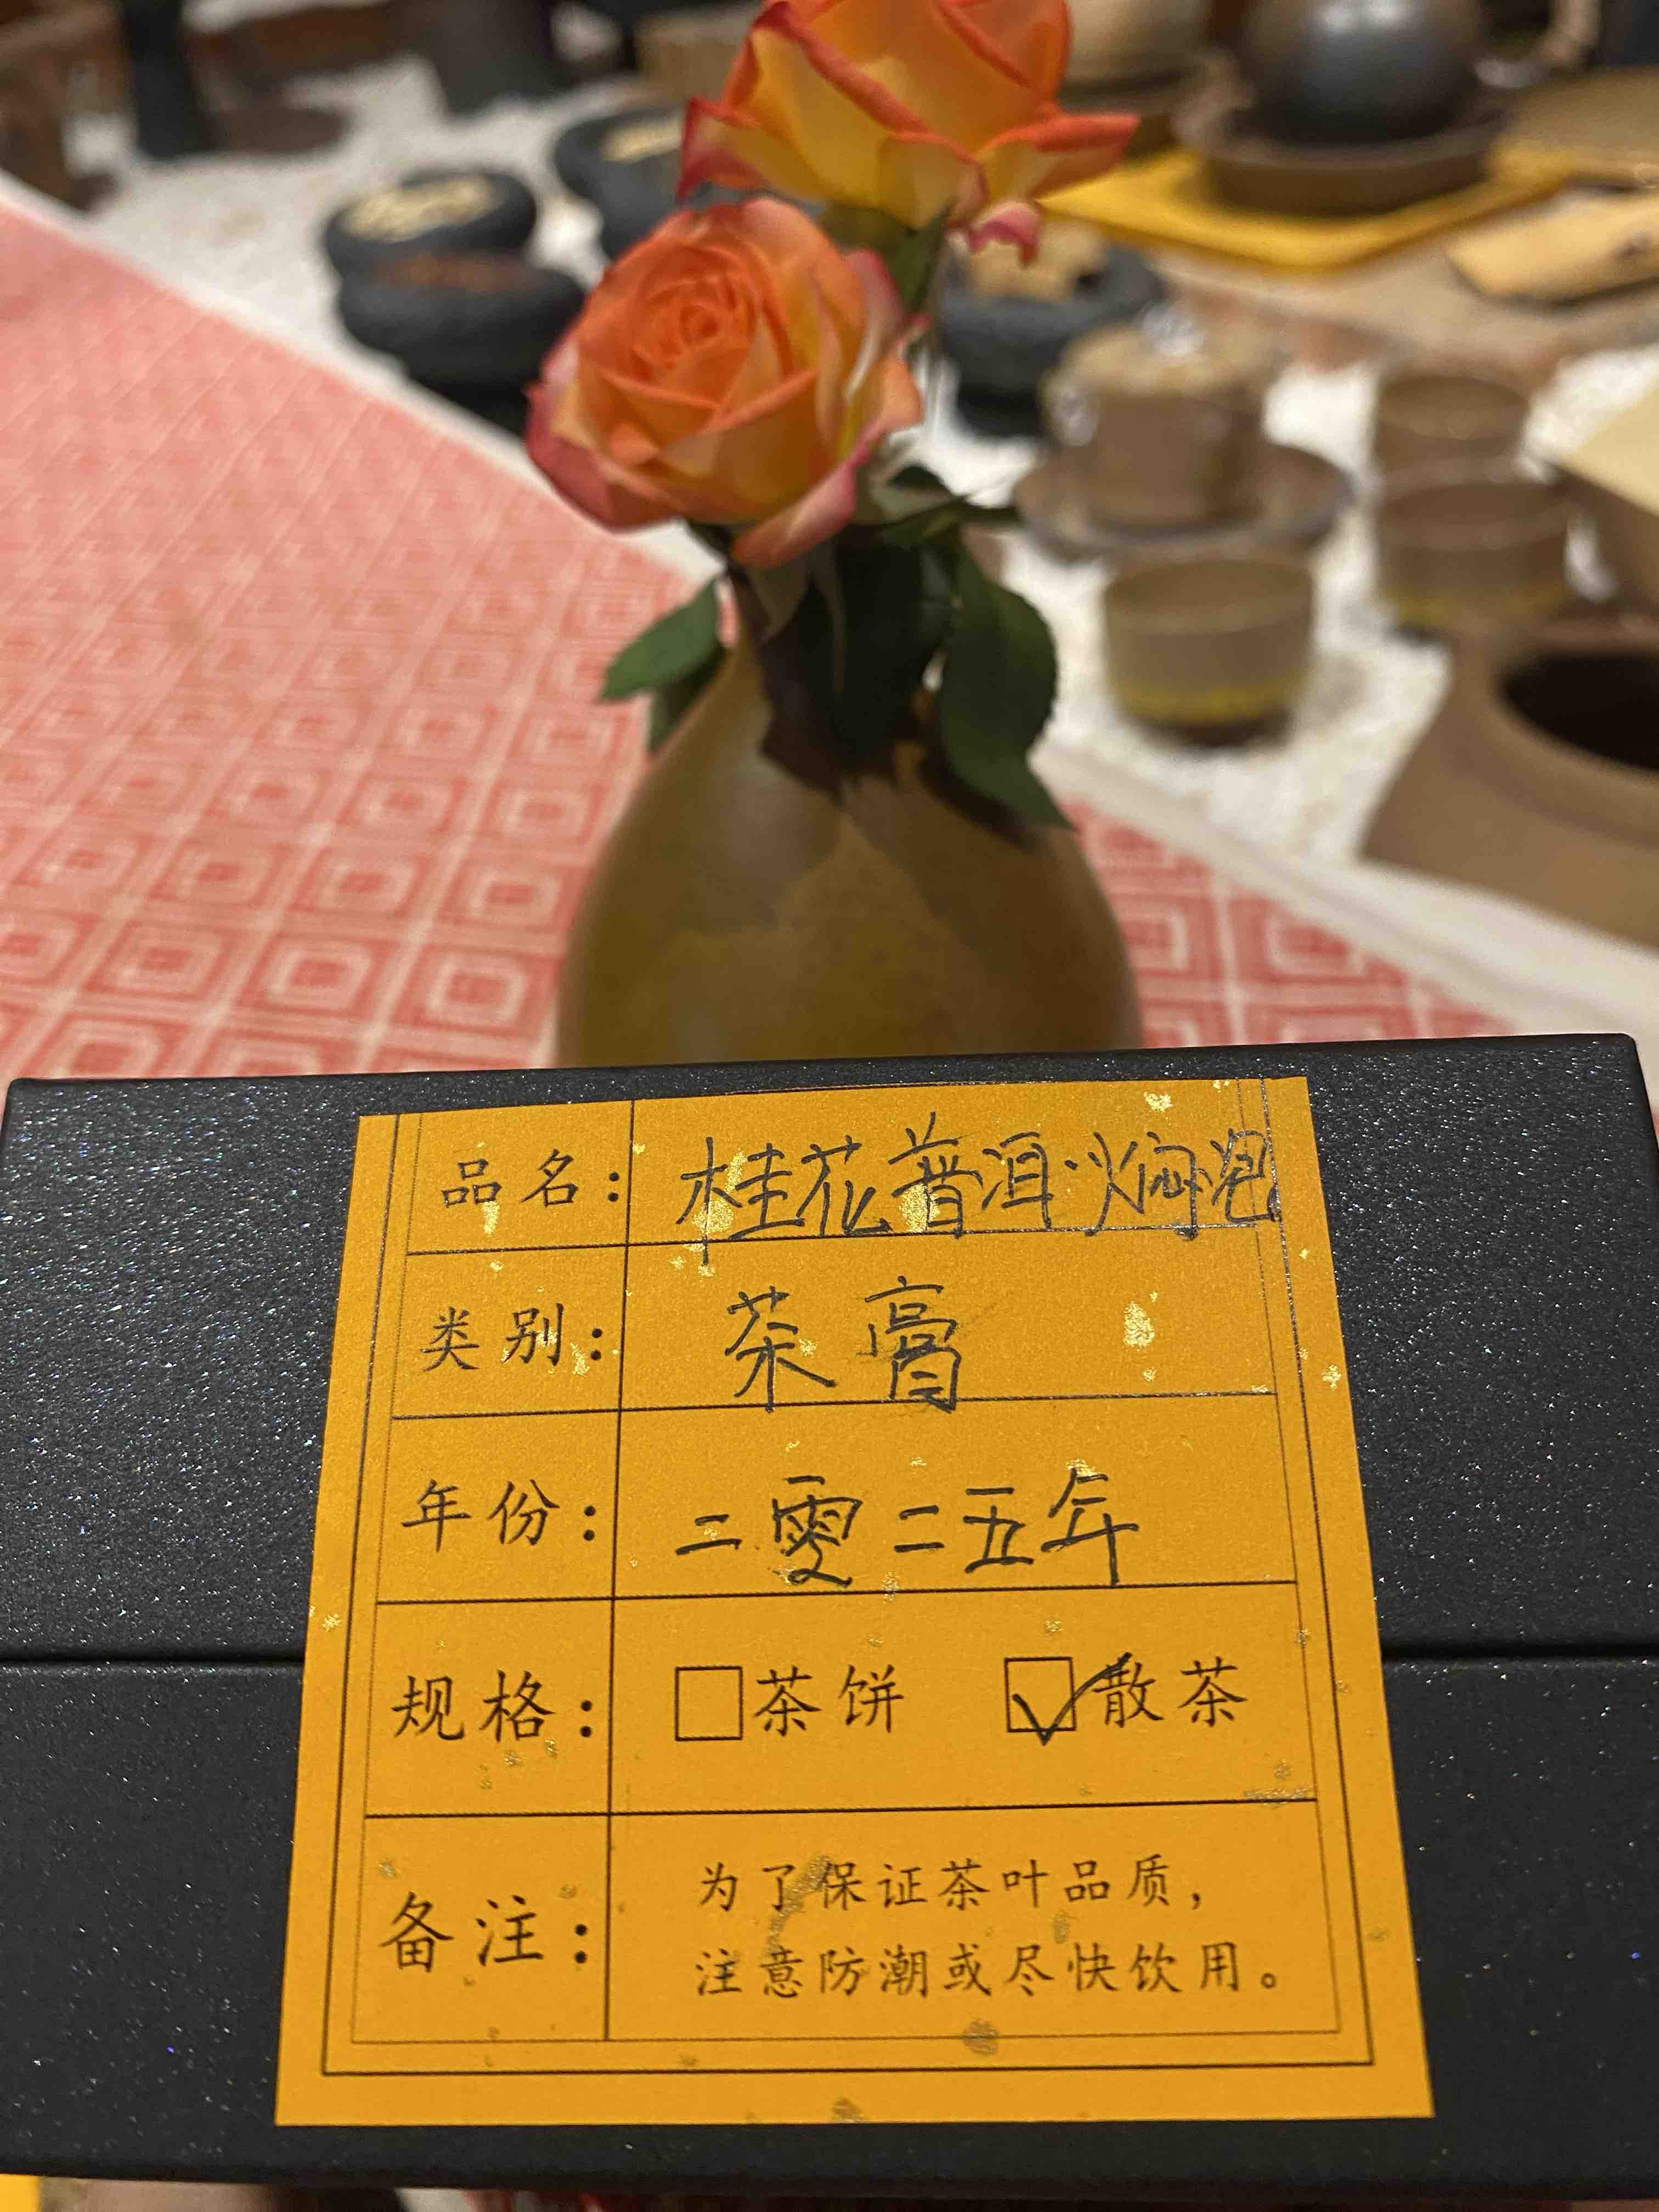 品名：桂花普洱·焖泡
类别：茶膏
年份：二零二五年
规格：□茶饼 ☑散茶
备注：为了保证茶叶品质，
注意防潮或尽快饮用。